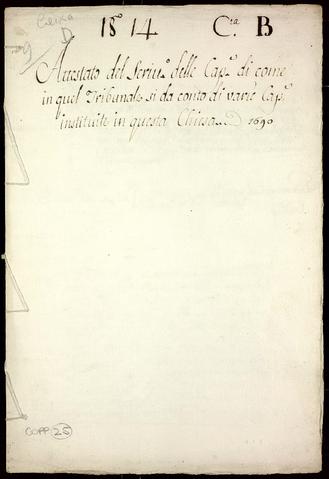 Caixa
D
29
18º 14 C.ra B
Attestato del Scriu.º delle Cap.e di come
in quel Tribunale si da conto di varie Cap.e
instituite in questa Chiesa. D 1690
COPP. 25